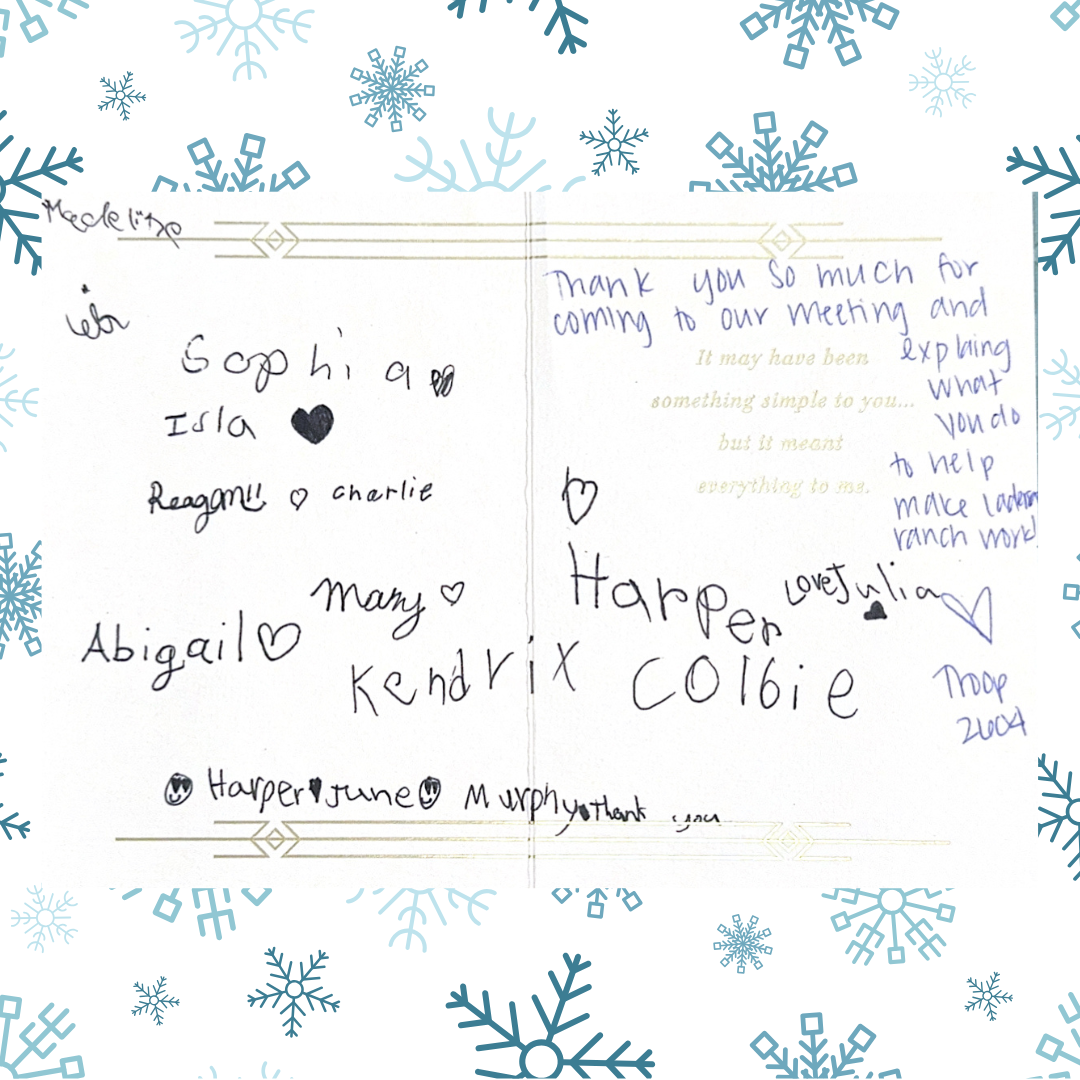 Madeline
Sophia
Isla
Reagan!! charlie
Mary
Abigail
Kendrix
Harper June Murphy thank you
Thank you so much for
coming to our meeting and
explaing
what
you do
to help
make ladera
ranch work!
It may have been
something simple to you...
but it meant
everything to me.
Harper
Love Julia
Colbie
Troop
2604